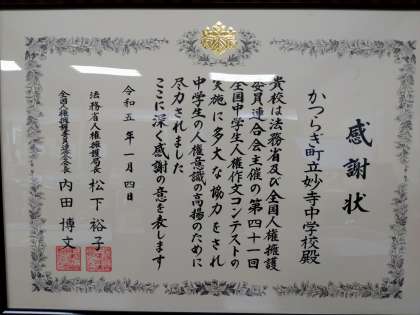 感謝状
かつらぎ町立妙寺中学校殿
貴校は法務省及び全国人権擁護
委員連合会主催の第四十一回
全国中学生人権作文コンテストの
実施に多大な協力をされ
中学生の人権意識の高揚のために
尽力されました
ここに深く感謝の意を表します
令和五年一月四日
法務省人権擁護局長 松下裕子
全国人権擁護委員連合会長 内田博文